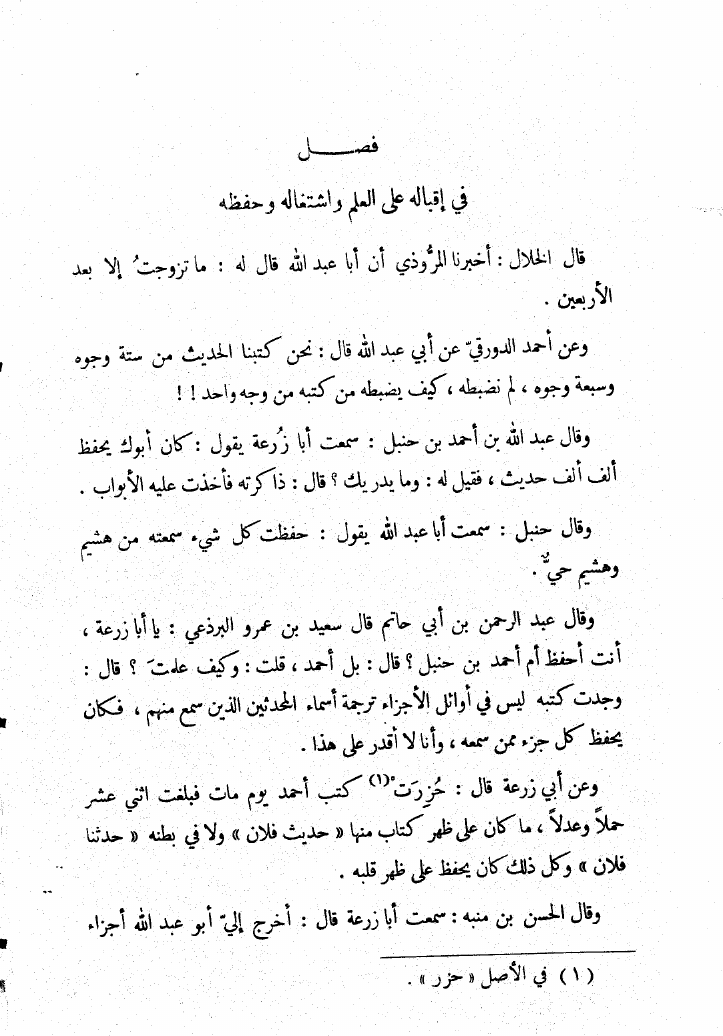 فصـــــل
في إقباله على العلم واشتغاله وحفظه
قال الخلال : أخبرنا المرُّوذي أن أبا عبد الله قال له : ما تزوجتُ إلا بعد
الأربعين .
وعن أحمد الدورقيّ عن أبي عبد الله قال : نحن كتبنا الحديث من ستة وجوه
وسبعة وجوه ، لم نضبطه ، كيف يضبطه من كتبه من وجه واحد ! !
وقال عبد الله بن أحمد بن حنبل : سمعت أبا زُرعة يقول : كان أبوك يحفظ
ألف ألف حديث ، فقيل له : وما يدريك ؟ قال : ذاكرته فأخذت عليه الأبواب .
وقال حنبل : سمعت أبا عبد الله يقول : حفظت كل شيء سمعته من هشيم
وهشيم حيٌّ .
وقال عبد الرحمن بن أبي حاتم قال سعيد بن عمرو البرذعي : يا أبا زرعة ،
أنت أحفظ أم أحمد بن حنبل ؟ قال : بل أحمد ، قلت : وكيف علمتَ ؟ قال :
وجدت كتبه ليس في أوائل الأجزاء ترجمة أسماء المحدثين الذين سمع منهم ، فكان
يحفظ كل جزء ممن سمعه ، وأنا لا أقدر على هذا .
وعن أبي زرعة قال : حُزِرَتْ (١) كتب أحمد يوم مات فبلغت اثني عشر
حملاً وعدلاً ، ما كان على ظهر كتاب منها « حديث فلان » ولا في بطنه « حدثنا
فلان » وكل ذلك كان يحفظ على ظهر قلبه .
وقال الحسن بن منبه : سمعت أبا زرعة قال : أخرج إليّ أبو عبد الله أجزاء
(١) في الأصل « حزر » .